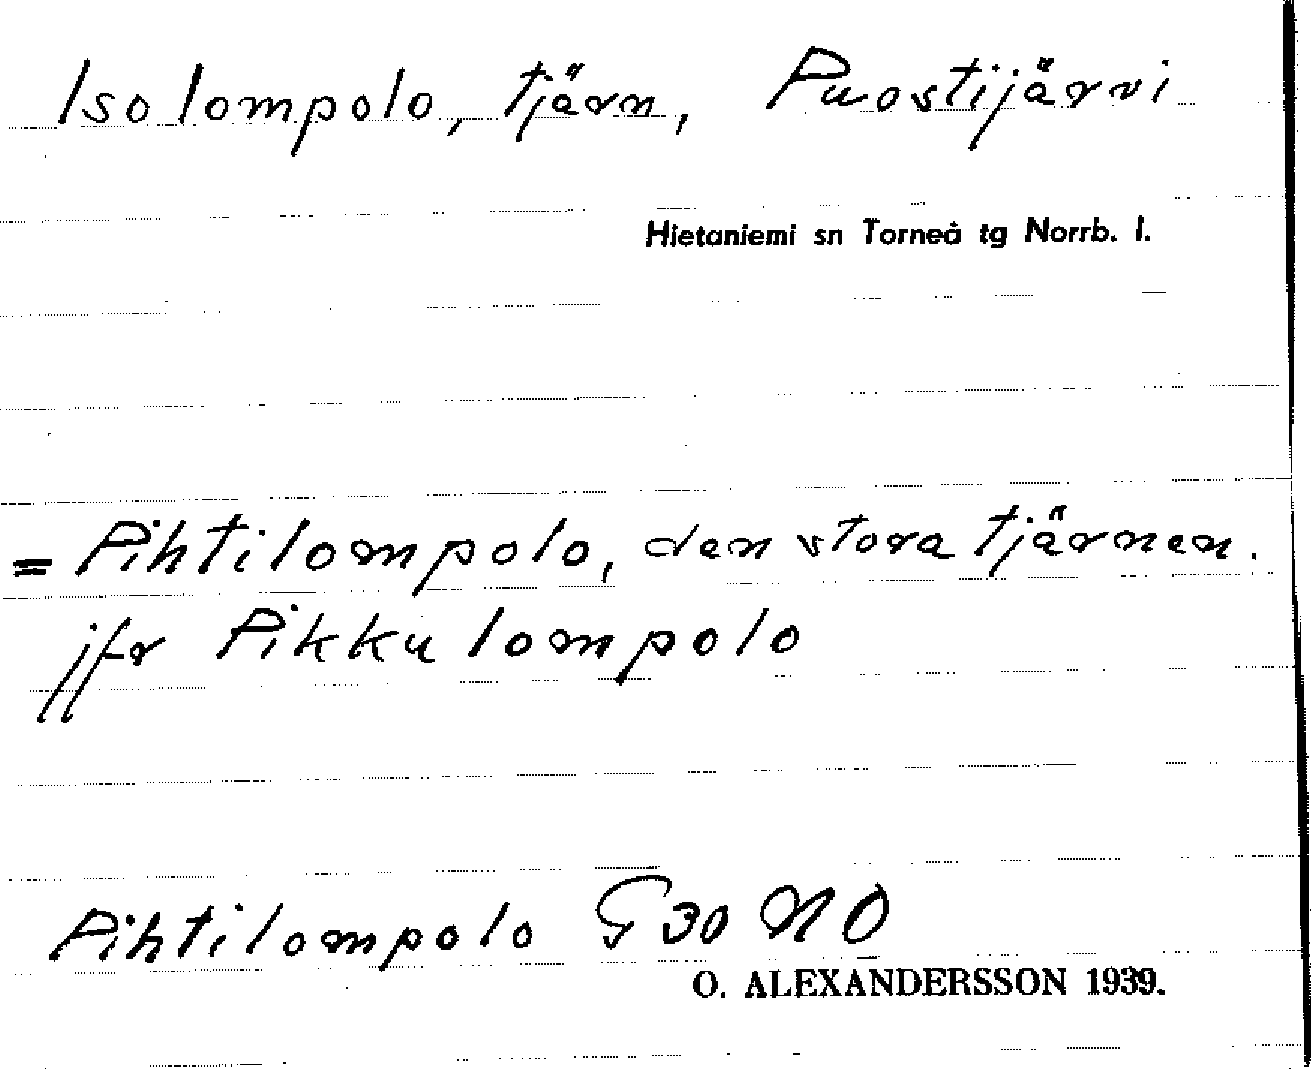 Isolompolo, tjärn, Puostijärvi
Hietaniemi sn Torneå tg Norrb. l.
= Pihtilompolo, den stora tjärnen.
jfr Pikkulompolo
Pihtilompolo G 30 NO
O. ALEXANDERSSON 1939.